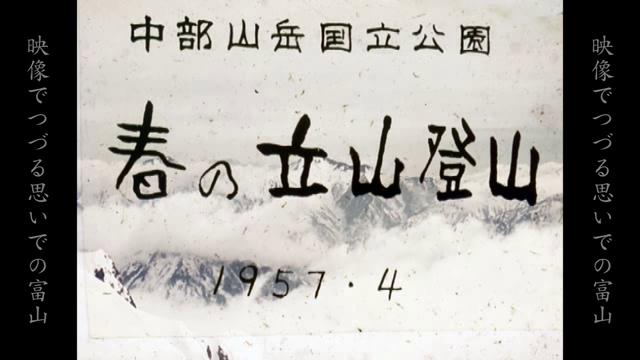 中部山岳国立公園
春の立山登山
1957・4
映像でつづる思いでの富山
映像でつづる思いでの富山